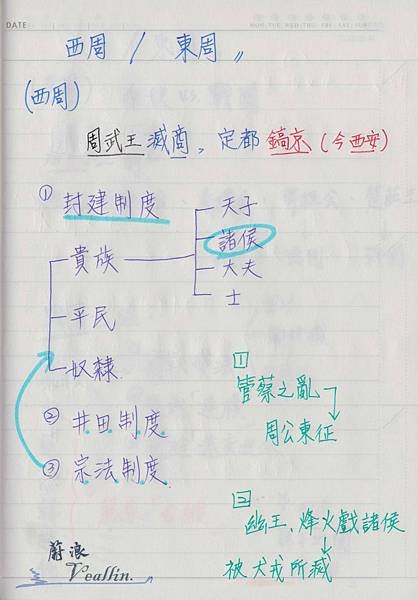 DATE
西周 / 東周
(西周)
周武王滅商，定都鎬京(今西安)
① 封建制度
貴族
天子
諸侯
大夫
士
平民
奴隸
② 井田制度
③ 宗法制度
1
管蔡之亂
周公東征
2
幽王、烽火戲諸侯
被犬戎所滅
蔚浪
Veallin.